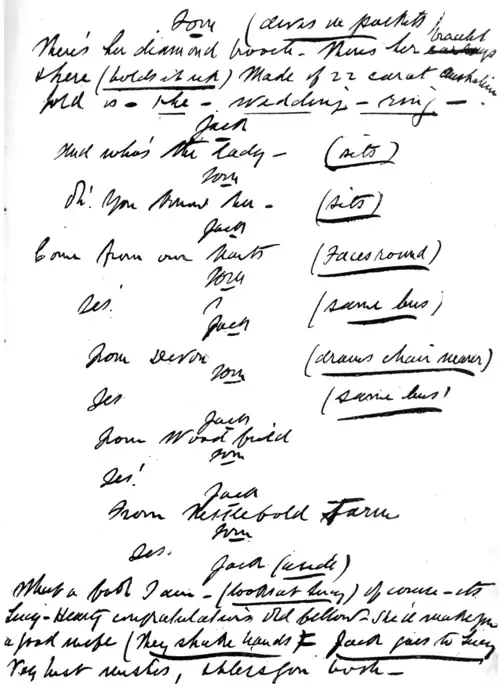 Tom (dives in pockets)
There's her diamond brooch - there's her bracelet
& here (holds it up) Made of 22 carat Australian
gold is - the - wedding - ring -
Jack
And who's the lady - (sits)
Tom
Oh! You know her - (sits)
Jack
Come from our parts (Faces round)
Tom
Yes! (same bus)
Jack
from Devon (draws chair nearer)
Tom
Yes (same bus)
Jack
from Woodfield
Tom
Yes!
Jack
From Nettlebold Farm
Tom
Yes.
Jack (aside)
What a fool I am - (looks at Lucy) of course - its
Lucy - Hearty congratulations old fellow - She'll make you
a good wife (They shake hands Jack goes to Lucy
Very best wishes, bless you both -